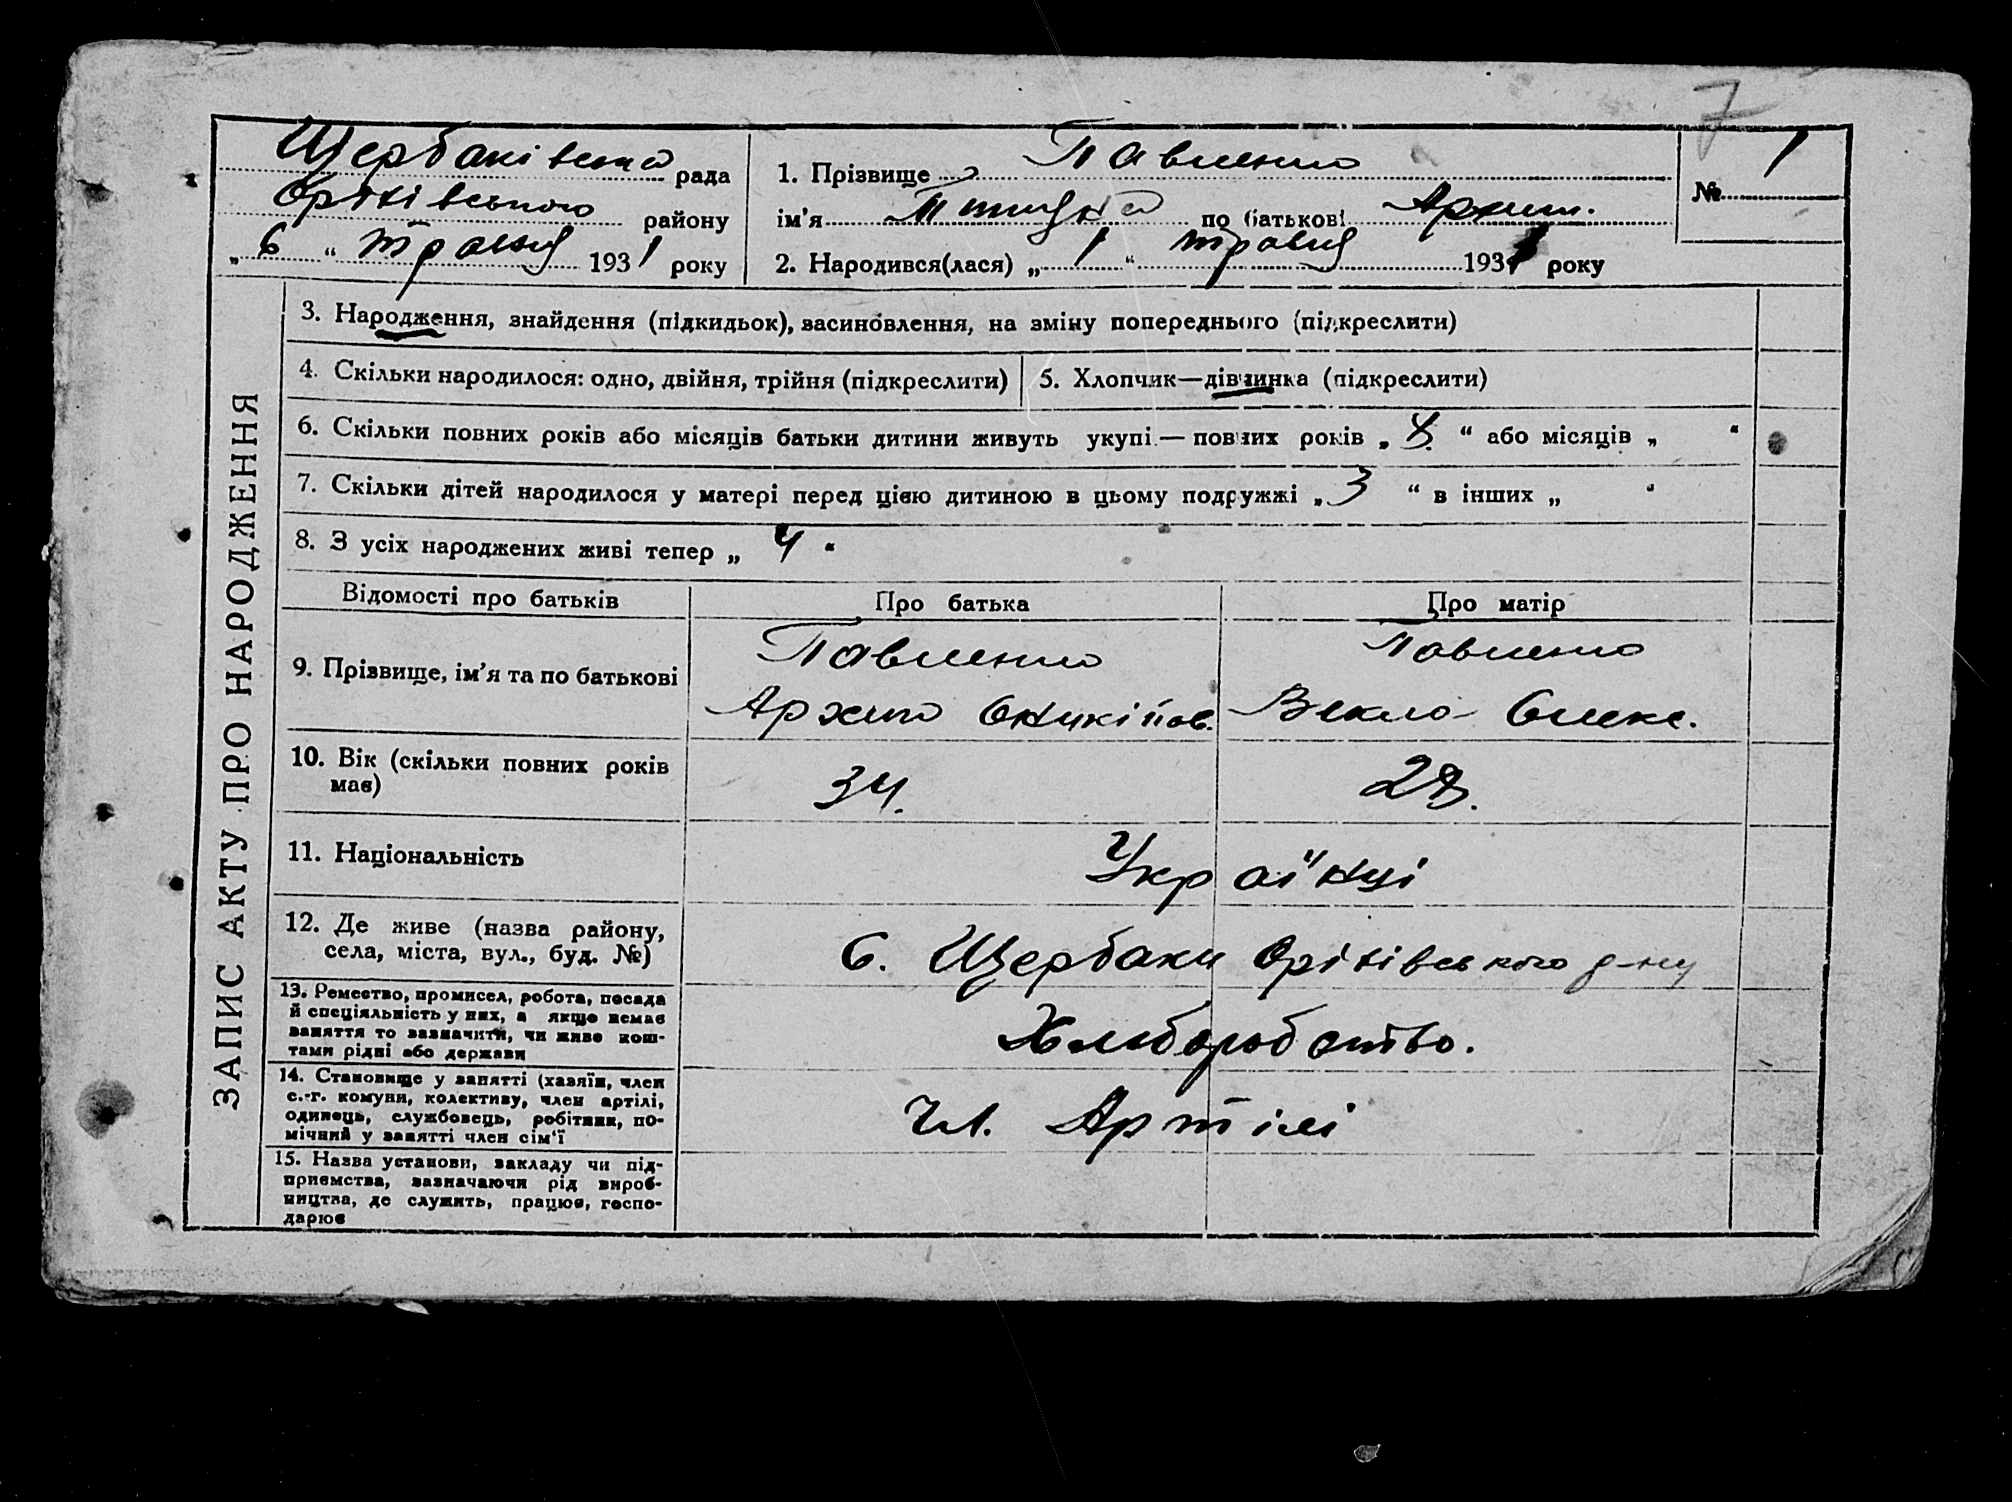 7
Щербаківська рада
Оріхівського району
„ 6 “ травня 1931 року
1. Прізвище Павленко
ім'я по батькові Архип.
2. Народився(лася) „ 1 “ травня 1931 року
№ 1
ЗАПИС АКТУ ПРО НАРОДЖЕННЯ
3. Народження, знайдення (підкидьок), засиновлення, на зміну попереднього (підкреслити)
4. Скільки народилося: одно, двійня, трійня (підкреслити)
5. Хлопчик—дівчинка (підкреслити)
6. Скільки повних років або місяців батьки дитини живуть укупі — повних років „ “ або місяців „ “
7. Скільки дітей народилося у матері перед цією дитиною в цьому подружжі „ 3 “ в інших „ “
8. З усіх народжених живі тепер „ 4 “
Відомості про батьків
Про батька
Про матір
9. Прізвище, ім'я та по батькові
Павленко
Архип Оникійов.
Павленко
Векла Олекс.
10. Вік (скільки повних років
має)
34.
28.
11. Національність
Українці
12. Де живе (назва району,
села, міста, вул., буд. №)
С. Щербаки Оріхівського р-ну
13. Ремество, промисел, робота, посада
й спеціяльність у них, а якщо немає
заняття то зазначити, чи живе кош-
тами рідні або держави
Хліборобство.
14. Становище у занятті (хазяїн, член
с.-г. комуни, колективу, член артілі,
одинець, службовець, робітник, по-
мічний у занятті член сім'ї
Чл. Артілі
15. Назва установи, закладу чи під-
приємства, зазначаючи рід вироб-
ництва, де служить, працює, госпо-
дарює